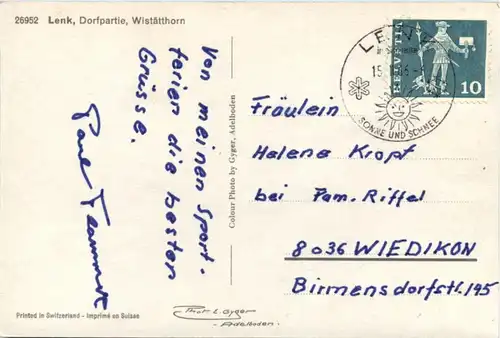 26952 Lenk, Dorfpartie, Wistätthorn
Von meinen Sport-
ferien die besten
Grüsse.
Colour Photo by Gyger, Adelboden
HELVETIA
10
LENK
SONNE UND SCHNEE
Fräulein
Helene Kropf
bei Fam. Riffel
8036 WIEDIKON
Birmensdorfstr. 195
Printed in Switzerland - Imprimé en Suisse
Phot. E. Gyger
- Adelboden.